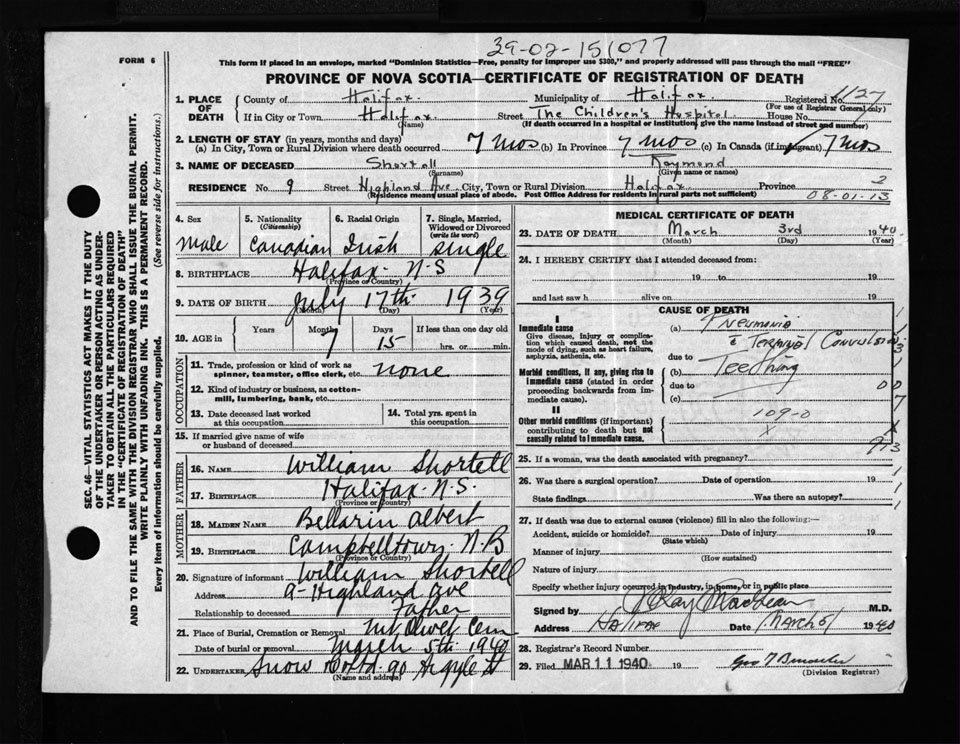 39-02-151077
FORM 6
This form if placed in an envelope, marked "Dominion Statistics—Free, penalty for improper use $300," and properly addressed will pass through the mail "FREE"
PROVINCE OF NOVA SCOTIA—CERTIFICATE OF REGISTRATION OF DEATH
1. PLACE OF DEATH { County of Halifax. Municipality of Halifax. Registered No. 1127
(For use of Registrar General only)
If in City or Town Halifax. Street The Children's Hospital. House No.
(Name) (If death occurred in a hospital or institution, give the name instead of street and number)
2. LENGTH OF STAY (in years, months and days)
(a) In City, Town or Rural Division where death occurred 7 mos (b) In Province 7 mos (c) In Canada (if immigrant) 7 mos
3. NAME OF DECEASED Shortell Raymond
(Surname) (Given name or names)
RESIDENCE No. 9 Street Highland Ave. City, Town or Rural Division Halifax. Province 2
(Residence means usual place of abode. Post Office Address for residents in rural parts not sufficient) 08-01-13
SEC. 46—VITAL STATISTICS ACT MAKES IT THE DUTY
OF THE UNDERTAKER OR PERSON ACTING AS UNDER-
TAKER TO OBTAIN ALL THE PARTICULARS REQUIRED
IN THE "CERTIFICATE OF REGISTRATION OF DEATH"
AND TO FILE THE SAME WITH THE DIVISION REGISTRAR WHO SHALL ISSUE THE BURIAL PERMIT.
WRITE PLAINLY WITH UNFADING INK. THIS IS A PERMANENT RECORD.
Every item of information should be carefully supplied. (See reverse side for instructions.)
4. Sex 5. Nationality 6. Racial Origin 7. Single, Married,
(Citizenship) Widowed or Divorced
(write the word)
Male Canadian Irish single
8. BIRTHPLACE Halifax- N-S
(Province or Country)
9. DATE OF BIRTH July 17th 1939
(Month) (Day) (Year)
10. AGE in { Years Months Days If less than one day old
7 15 hrs. or min.
OCCUPATION
11. Trade, profession or kind of work as
spinner, teamster, office clerk, etc. none
12. Kind of industry or business, as cotton-
mill, lumbering, bank, etc.
13. Date deceased last worked
at this occupation
14. Total yrs. spent in
this occupation
15. If married give name of wife
or husband of deceased
FATHER
16. NAME William Shortell
17. BIRTHPLACE Halifax- N.S.
(Province or Country)
MOTHER
18. MAIDEN NAME Bellarin Albert
19. BIRTHPLACE Campbelltown- N-B
(Province or Country)
20. Signature of informant William Shortell
Address 9-Highland ave
Relationship to deceased Father
21. Place of Burial, Cremation or Removal Mt Olivet Cem
Date of burial or removal March 5th 1940
22. UNDERTAKER Snow Co Ltd. 90 Argyle St
(Name and address)
MEDICAL CERTIFICATE OF DEATH
23. DATE OF DEATH March 3rd 1940.
(Month) (Day) (Year)
24. I HEREBY CERTIFY that I attended deceased from:
19 to 19
and last saw h alive on 19
CAUSE OF DEATH
I
Immediate cause
Give disease, injury or complica-
tion which caused death, not the
mode of dying, such as heart failure,
asphyxia, asthenia, etc.
(a) Pneumonia
& Terminal Convulsions
due to
Morbid conditions, if any, giving rise to
immediate cause (stated in order
proceeding backwards from im-
mediate cause).
(b) Teething
due to
(c)
II
Other morbid conditions (if important)
contributing to death but not
causally related to immediate cause.
109-0
x
25. If a woman, was the death associated with pregnancy?
26. Was there a surgical operation? Date of operation 19
State findings Was there an autopsy?
27. If death was due to external causes (violence) fill in also the following:—
Accident, suicide or homicide? Date of injury 19
(State which)
Manner of injury
(How sustained)
Nature of injury
Specify whether injury occurred in industry, in home, or in public place
Signed by J Ray MacLean M.D.
Address Halifax Date March 5/ 1940
28. Registrar's Record Number
29. Filed MAR 11 1940 19
(Division Registrar)